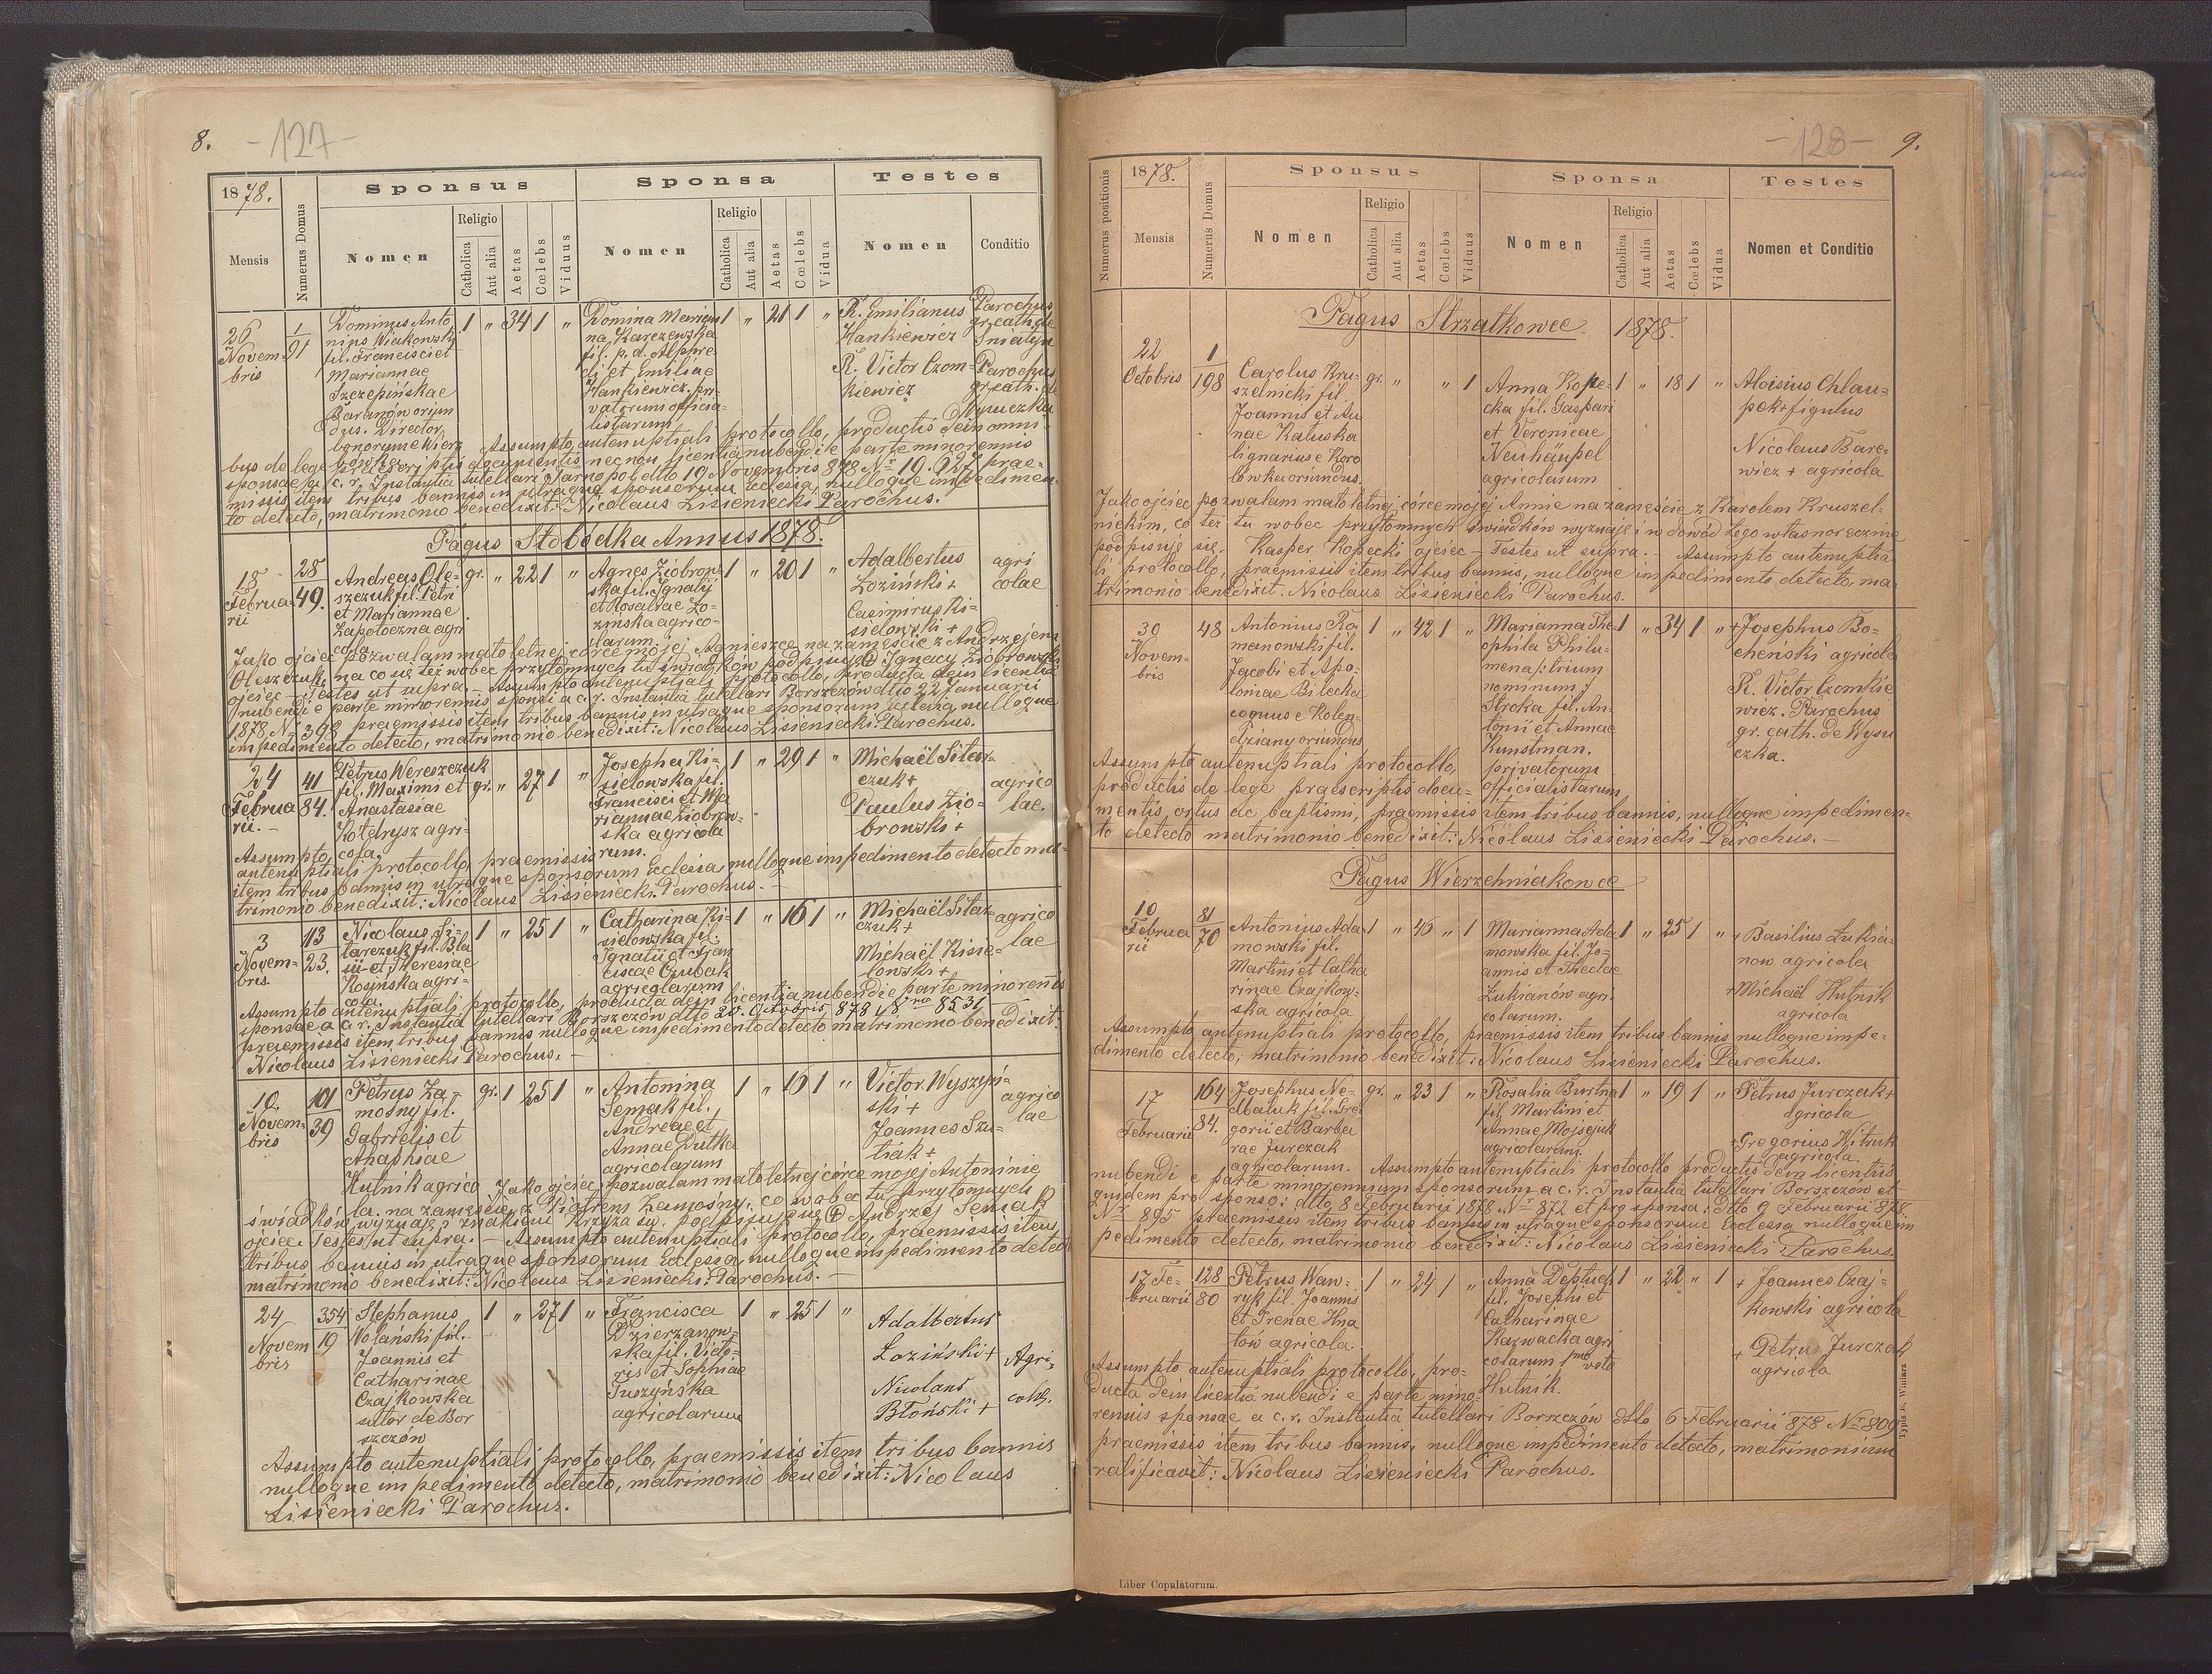 8. -127-
1878.
Sponsus
Sponsa
Testes
Mensis
Numerus Domus
Nomen
Religio
Catholica
Aut alia
Aetas
Cœlebs
Viduus
Nomen
Religio
Catholica
Aut alia
Aetas
Cœlebs
Vidua
Nomen
Conditio
26 Novem=
bris
1
91
Dominus Anto
nius Wiakowski
fil. Francisci et
Mariannae
Szczepińskae
Baranów oriun
dus. Director
bonorum e Wierz
1 " 34 1 "
Domina Marian
na Karczewska
fil. p. d. Alphre
di et Emiliae
Hankiewicz pri
vatorum officia=
listarum
1 " 21 1 "
R. Emilianus
Hankiewicz
R. Victor Czom=
kiewicz
Parochus
gr. cath. de
Sniatyn
Parochus
gr. cath. de
Wysuczka
Assumpto autenuptiali protocollo, productis dein omni=
bus de lege praescriptis documentis, nec non licentia nubendi e parte minorennis
sponsae a c. r. Instantia tutellari Tarnopol dtto 19 Novembris 878 Nr 19.927 prae=
missis item tribus bannis in utraque sponsorum Ecclesia, nulloque impedimen=
to detecto, matrimonio benedixit: Nicolaus Lisieniecki Parochus.
Pagus Słobódka Annus 1878.
18
Februa=
rii
28
49.
Andreas Ole=
szczuk fil. Petri
et Mariannae
Zapotoczna agri
cola.
gr. " 22 1 "
Agnes Ziobrow
ska fil. Ignatij
et Rosaliae Ło=
zinska agrico=
larum.
1 " 20 1 "
Adalbertus
Łoziński +
Casimirus Ki=
sielowski +
agri
colae
Jako ojciec pozwalam małoletnej córce mojej Agnieszce na zamęście z Andrzejem
Oleszczuk, na co się też wobec przytomnych tu świadków podpisuję + Ignacy Ziobrowski
ojciec - Testes ut supra. - Assumpto autenuptiali protocollo, producta dein licentia
nubendi e parte minorennis sponsi a c. r. Instantia tutellari Borszczów dtto 22 Januarii
1878 Nr 398 praemissis item tribus bannis in utraque sponsorum Ecclesia, nulloque
impedimento detecto, matrimonio benedixit: Nicolaus Lisieniecki Parochus.
24
Februa
rii. -
41
84.
Petrus Wereszczuk
fil. Maximi et
Anastasiae
Kotdrysz agri=
cola.
gr. " 27 1 "
Josepha Ki=
sielowska fil.
Francisci et Ma
riannae Ziobrow=
ska agricola
rum.
1 " 29 1 "
Michaël Sitar=
czuk +
Paulus Zio=
browski +
agrico
lae.
Assumpto
autenuptiali protocollo, praemissis
item tribus bannis in utraque sponsorum Ecclesia, nulloque impedimento detecto ma=
trimonio benedixit: Nicolaus Lisieniecki Parochus. -
3
Novem=
bris.
113
23.
Nicolaus Si=
tarczuk fil. Bla
sii et Theresiae
Kosińska agri=
cola.
1 " 25 1 "
Catharina Ki=
sielowska fil.
Ignatii et Fran
ciscae Czubak
agricolarum
1 " 16 1 "
Michaël Sitar=
czuk +
Michaël Kisie=
lowski +
agrico
lae
Assumpto autenuptiali protocollo, producta dein licentia nubendi e parte minorennis
sponsae a c. r. Instantia tutellari Borszczów dtto 20. Octobris 878 sub Nro 8531 -
praemissis item tribus bannis nulloque impedimento detecto matrimonio benedixit:
Nicolaus Lisieniecki Parochus. -
10
Novem=
bris
101
39
Petrus Za=
mośny fil.
Gabrielis et
Ahaphiae
Hutnik agrico
la.
gr. 1 25 1 "
Antonina
Semak fil.
Andreae et
Annae Dutka
agricolarum
1 " 19 1 "
Victor Wyszyń=
ski +
Joannes Szu=
tiak +
agrico
lae
Jako ojciec pozwalam małoletnej córce mojej Antoninie
na zamęście z Piotrem Zamośny, co wobec tu przytomnych
świadków wyznaję i znakiem Krzyża św. podpisuję się + Andrzej Semak
ojciec. Testes ut supra. - Assumpto autenuptiali protocollo, praemissis item
tribus bannis in utraque sponsorum Ecclesia, nulloque impedimento detecto
matrimonio benedixit: Nicolaus Lisieniecki Parochus. -
24
Novem
bris
354
19
Stephanus
Wolański fil.
Joannis et
Catharinae
Czajkowska
sutor de Bor
szczów
1 " 27 1 "
Francisca
Dzierzanow=
ska fil. Victo=
ris et Sophiae
Tuszyńska
agricolarum
1 " 25 1 "
Adalbertus
Łoziński +
Nicolaus
Błoński +
Agri,
colae.
Assumpto autenuptiali protocollo, praemissis item tribus bannis
nulloque impedimento detecto, matrimonio benedixit: Nicolaus
Lisieniecki Parochus.
-128- 9.
1878.
Sponsus
Sponsa
Testes
Numerus positionis
Mensis
Numerus Domus
Nomen
Religio
Catholica
Aut alia
Aetas
Cœlebs
Viduus
Nomen
Religio
Catholica
Aut alia
Aetas
Cœlebs
Vidua
Nomen et Conditio
Pagus Strzałkowce. 1878.
22
Octobris
1
198
Carolus Kru=
szelnicki fil
Joannis et An
nae Kaluska
lignarius e Koro
lówka oriundus.
gr. " " 1
Anna Kope=
cka fil. Gaspari
et Veronicae
Neuhäupel
agricolarum
1 " 18 1 "
Aloisius Chlau=
pek + figulus
Nicolaus Bare=
wicz + agricola
Jako ojciec pozwalam małoletnej córce mojej Annie na zamęście z Karolem Kruszel=
nickim, co też tu wobec przytomnych świadków wyznaję i w dowód tego własnoręcznie
podpisuję się. Kasper Kopecki ojciec - Testes ut supra. - Assumpto autenuptia
li protocollo, praemissis item tribus bannis, nulloque impedimento detecto, ma=
trimonio benedixit. Nicolaus Lisieniecki Parochus.
30
Novem=
bris
48
Antonius Ro
manowski fil.
Jacobi et Apo=
loniae Bilecka
coquus e Kolen=
dziany oriundus
1 " 42 1 "
Marianna The=
ophila Philu=
mena /: trium
nominum :/
Stroka fil. An=
tonii et Annae
Kunstman.
privatorum
officialistarum
1 " 34 1 "
+ Josephus Bo=
chenski agricola
R. Victor Czomkie
wicz. Parochus
gr. cath. de Wysu
czka.
Assumpto autenuptiali protocollo,
productis de lege praescriptis docu=
mentis ortus ac baptismi, praemissis item tribus bannis, nulloque impedimen=
to detecto matrimonio benedixit: Nicolaus Lisieniecki Parochus. -
Pagus Wierzchniakowce
10
Februa
rii
81
70
Antonius Ada=
mowski fil.
Martini et Catha
rinae Czajkow=
ska agricola
1 " 46 " 1
Marianna Ada
mowska fil. Jo=
annis et Theclae
Lukianów agri=
colarum.
1 " 25 1 "
+ Basilius Łukia=
now agricola
+ Michaël Hutnik
agricola
Assumpto autenuptiali protocollo, praemissis item tribus bannis nulloque impe=
dimento detecto, matrimonio benedixit: Nicolaus Lisieniecki Parochus.
17
Februarii
164
84.
Josephus Ne=
dbaluk fil. Gre=
gorii et Barba
rae Jurczak
agricolarum.
gr. " 23 1 "
Rosalia Burtna
fil. Martini et
Annae Mojsejuk
agricolarum.
1 " 19 1 "
Petrus Jurczak +
agricola
+ Gregorius Witruk
agricola.
Assumpto autenuptiali protocollo productis dein licentiis
nubendi e parte minorennium sponsorum a c. r. Instantia tutellari Borszczow et
quidem pro sponso: dtto 8 Februarii 1878 Nr 872 et pro sponsa: dtto 9 Februarii 878.
Nr 895 praemissis item tribus bannis in utraque sponsorum Ecclesia nulloque im
pedimento detecto, matrimonio benedixit: Nicolaus Lisieniecki Parochus.
17 Fe=
bruarii
128
80
Petrus Waw=
ryk fil. Joannis
et Irenae Hna
tów agricola.
1 " 24 1 "
Anna Deptuch
fil. Josephi et
Catharinae
Kazwacka agri
colarum 1mo voto
Hutnik.
1 " 22 " 1
+ Joannes Czaj=
kowski agricola
+ Petrus Jurczak
agricola
Assumpto autenuptiali protocollo, pro=
ducta dein licentia nubendi e parte mino=
rennis sponsae a c. r. Instantia tutellari Borszczów dtto 6 Februarii 878 Nr 809
praemissis item tribus bannis, nulloque impedimento detecto, matrimonium
ratificavit: Nicolaus Lisieniecki Parochus.
Liber Copulatorum.